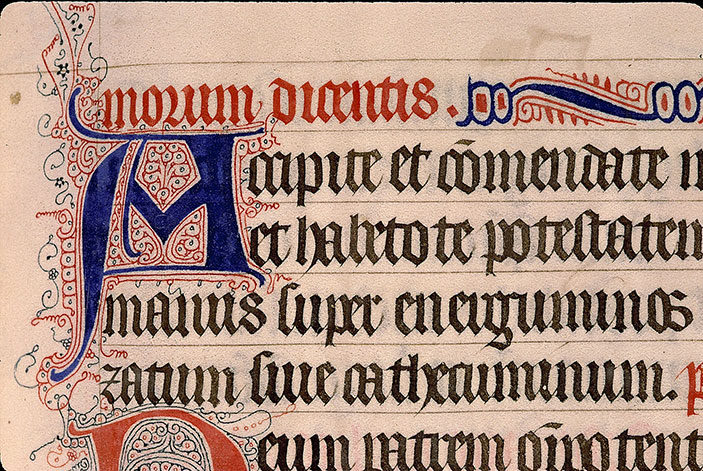 morum dicentis.
Accipite et cōmendate
et habetote potestatem
manus super energuminos
zatum siue cathecuminum.
Deum patrem